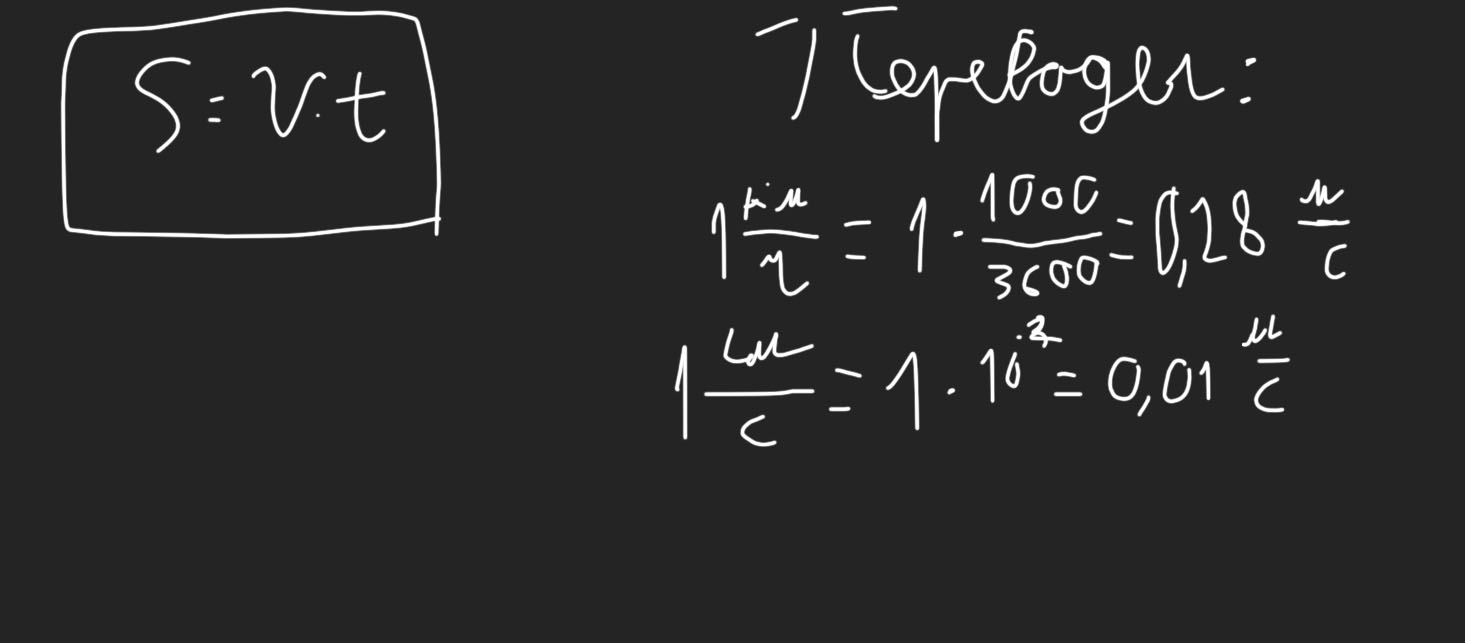 S = v · t
Переводы:
1 км/ч = 1 · 1000/3600 = 0,28 м/с
1 см/с = 1 · 10⁻² = 0,01 м/с